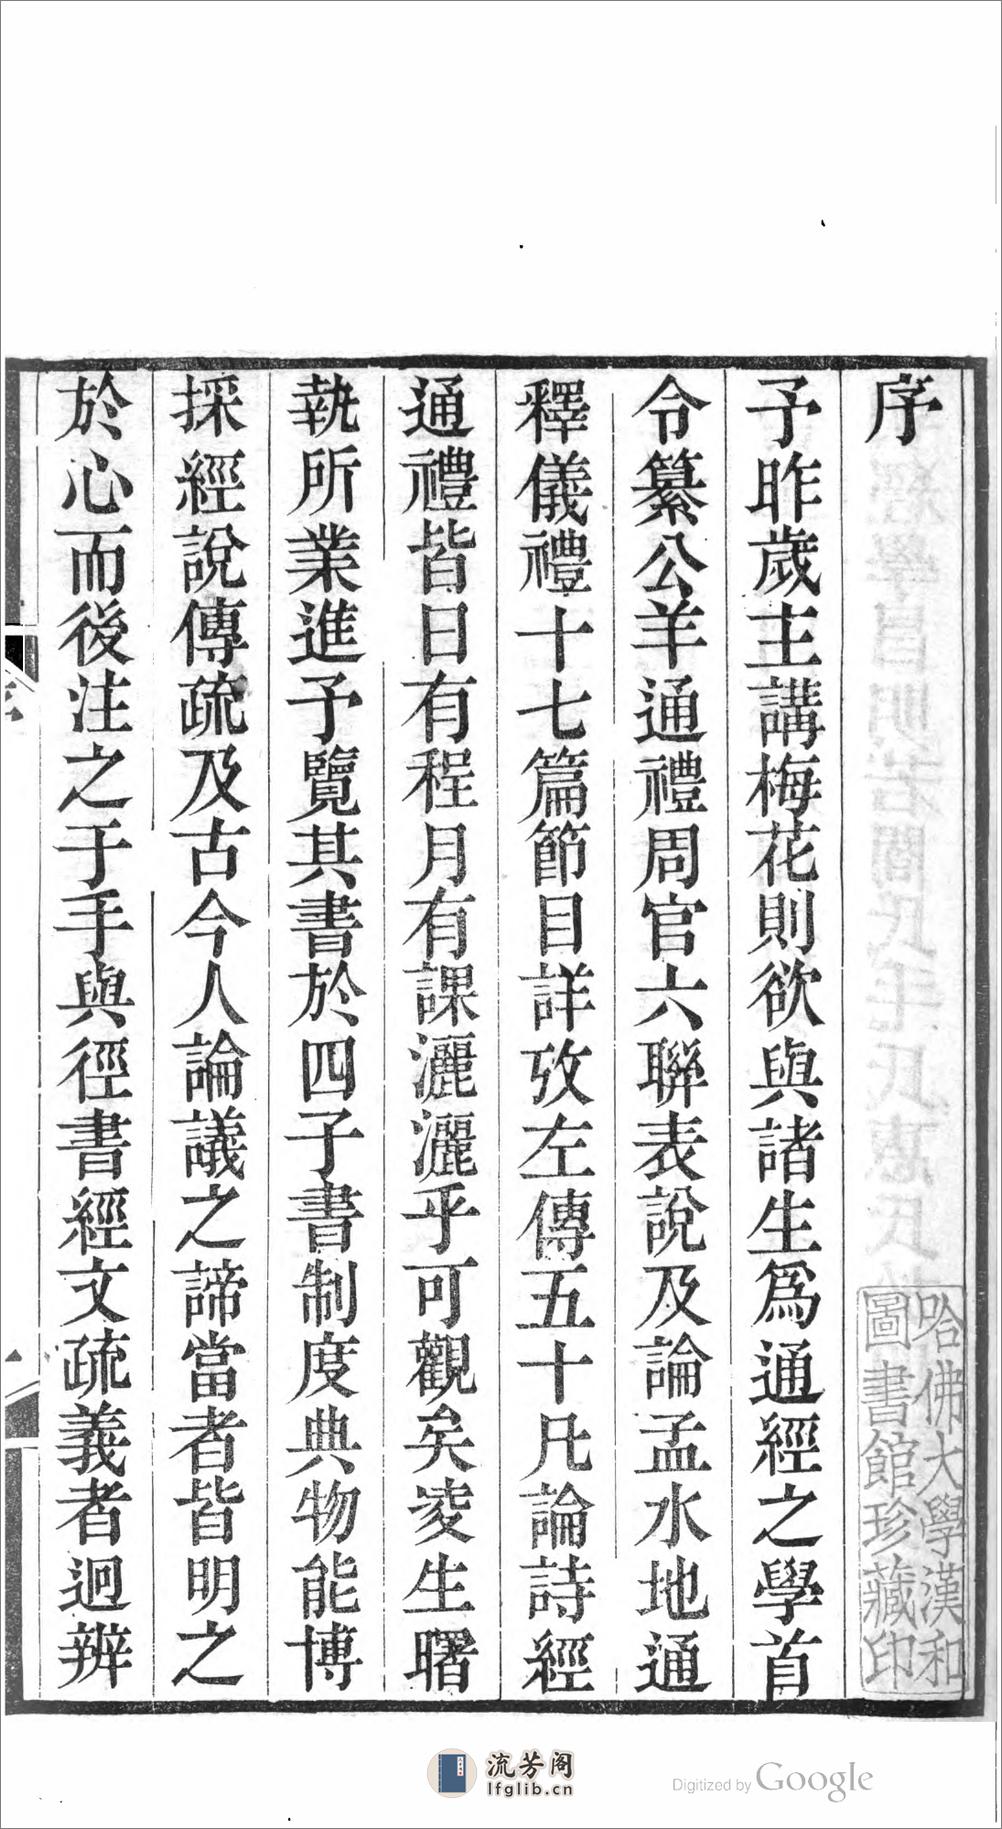 序
予昨歲主講梅花則欲與諸生爲通經之學首
令纂公羊通禮周官六聯表說及論孟水地通
釋儀禮十七篇節目詳攷左傳五十凡論詩經
通禮皆日有程月有課灑灑乎可觀矣凌生曙
執所業進予覽其書於四子書制度典物能博
採經說傳疏及古今人論議之諦當者皆明之
於心而後注之于手與徑書經文疏義者迥辨
哈佛大學漢和
圖書館珍藏印
流芳阁
lfglib.cn
Digitized by Google